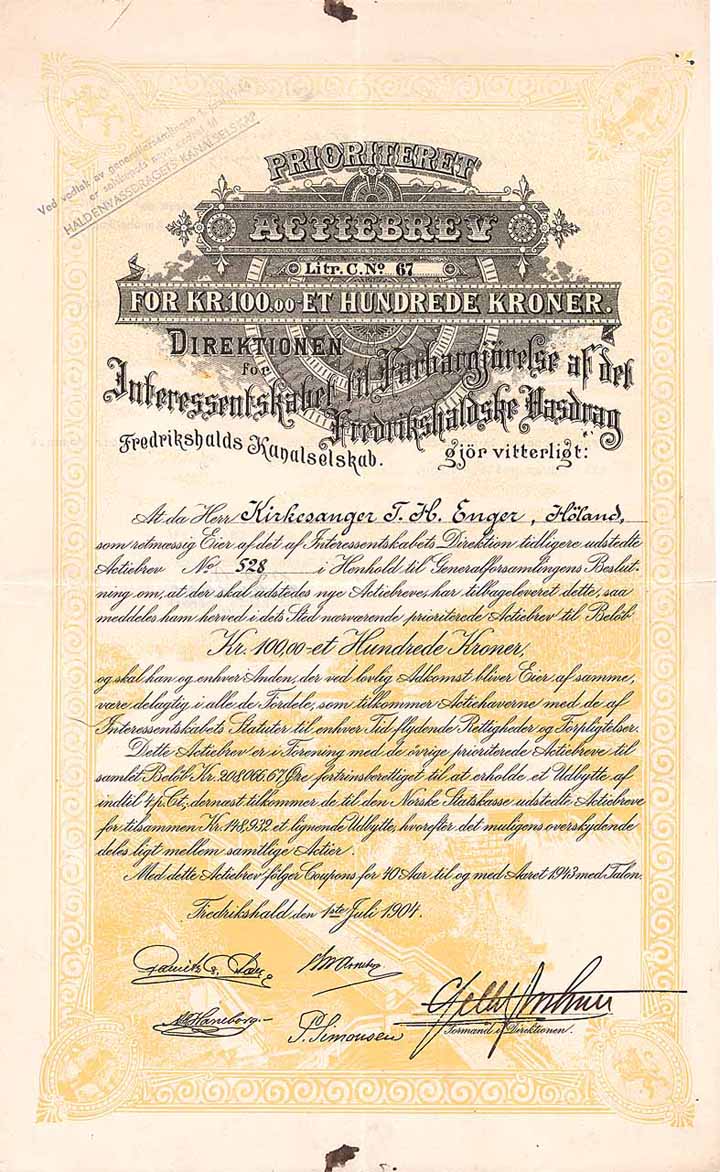 Ved vedtak av generalforsamlingen
er selskapets navn endret til
HALDENVASSDRAGETS KANALSELSKAP
PRIORITERET
ACTIEBREV
Litr. C. No 67
FOR KR. 100.00 ET HUNDREDE KRONER.
DIREKTIONEN
FOR
Interessentskabet til Farbargjörelse af det
Fredrikshaldske Vasdrag
Fredrikshalds Kanalselskab. gjör vitterligt:
At da Herr Kirkesanger T. H. Enger, Höland,
som retmæssig Eier af det af Interessentskabets Direktion tidligere udstedte
Actiebrev No 528 i Henhold til Generalforsamlingens Beslut-
ning om, at der skal udstedes nye Actiebreve, har tilbageleveret dette, saa
meddeles ham herved i dets Sted nærværende prioriterede Actiebrev til Belöb
Kr. 100,00 - et Hundrede Kroner,
og skal han og enhver Anden, der ved lovlig Adkomst bliver Eier af samme,
være delagtig i alle de Fordele, som tilkommer Actiehaverne med de af
Interessentskabets Statuter til enhver Tid flydende Rettigheder og Forpligtelser.
Dette Actiebrev er i Forening med de övrige prioriterede Actiebreve til
samlet Belöb Kr. 208066,67 Øre fortrinsberettiget til at erholde et Udbytte af
indtil 4 p. Ct.; dernæst tilkommer de til den Norske Statskasse udstedte Actiebreve
for tilsammen Kr. 148,932 et lignende Udbytte, hvorefter det muligens overskydende
deles ligt mellem samtlige Actier.
Med dette Actiebrev følger Coupons for 40 Aar til og med Aaret 1943 med Talon.
Fredrikshald den 1ste Juli 1904.
Haneborg.
P. Simonsen
Formand i Direktionen.